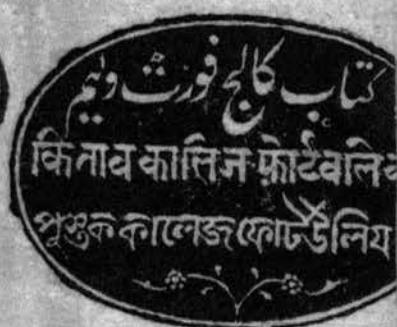 کتاب کالج فورٹ ولیم
किताब कालिज फ़ोर्टवलि
পুস্তক কালেজ ফোর্টউলিয